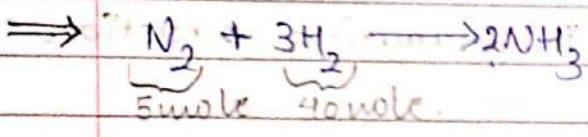 ⟹ N₂ + 3H₂ ⟶ 2NH₃
5 mole 40 mole.